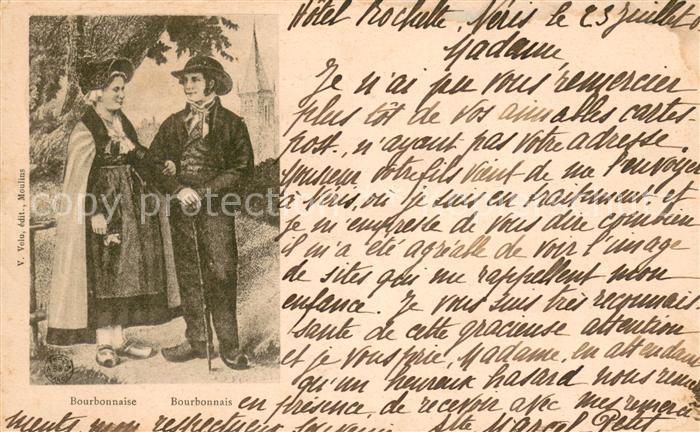 Hôtel Rochette, Néris le 23 juillet
Madame,
Je n'ai pu vous remercier
plus tôt de vos aimables cartes-
post., n'ayant pas votre adresse.
Monsieur votre fils vient de me l'envoyer
à Néris, où je suis en traitement, et
je m'empresse de vous dire combien
il m'a été agréable de voir l'image
de sites qui me rappellent mon
enfance. Je vous suis très reconnais-
sante de cette gracieuse attention
et je vous prie, Madame, en attendant
qu'un heureux hasard nous remette
en présence, de recevoir avec mes remercie-
ments, mon respectueux souvenir. Marcel Petit
V. Velu, édit., Moulins
Bourbonnaise Bourbonnais
copy protection